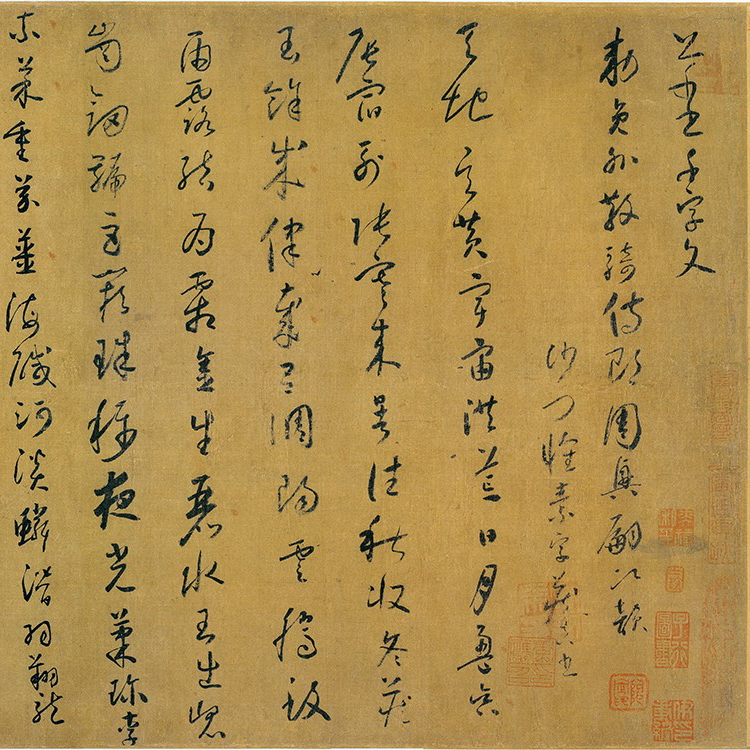 千字文
勅員外散騎侍郎周興嗣次韻
沙門懷素字藏真書
天地玄黃宇宙洪荒日月盈昃
辰宿列張寒來暑往秋收冬藏
閏餘成律歲呂調陽雲騰致
雨露結為霜金生麗水玉出崐
崗劍號巨闕珠稱夜光菓珍李
柰菜重芥薑海鹹河淡鱗潛羽翔龍